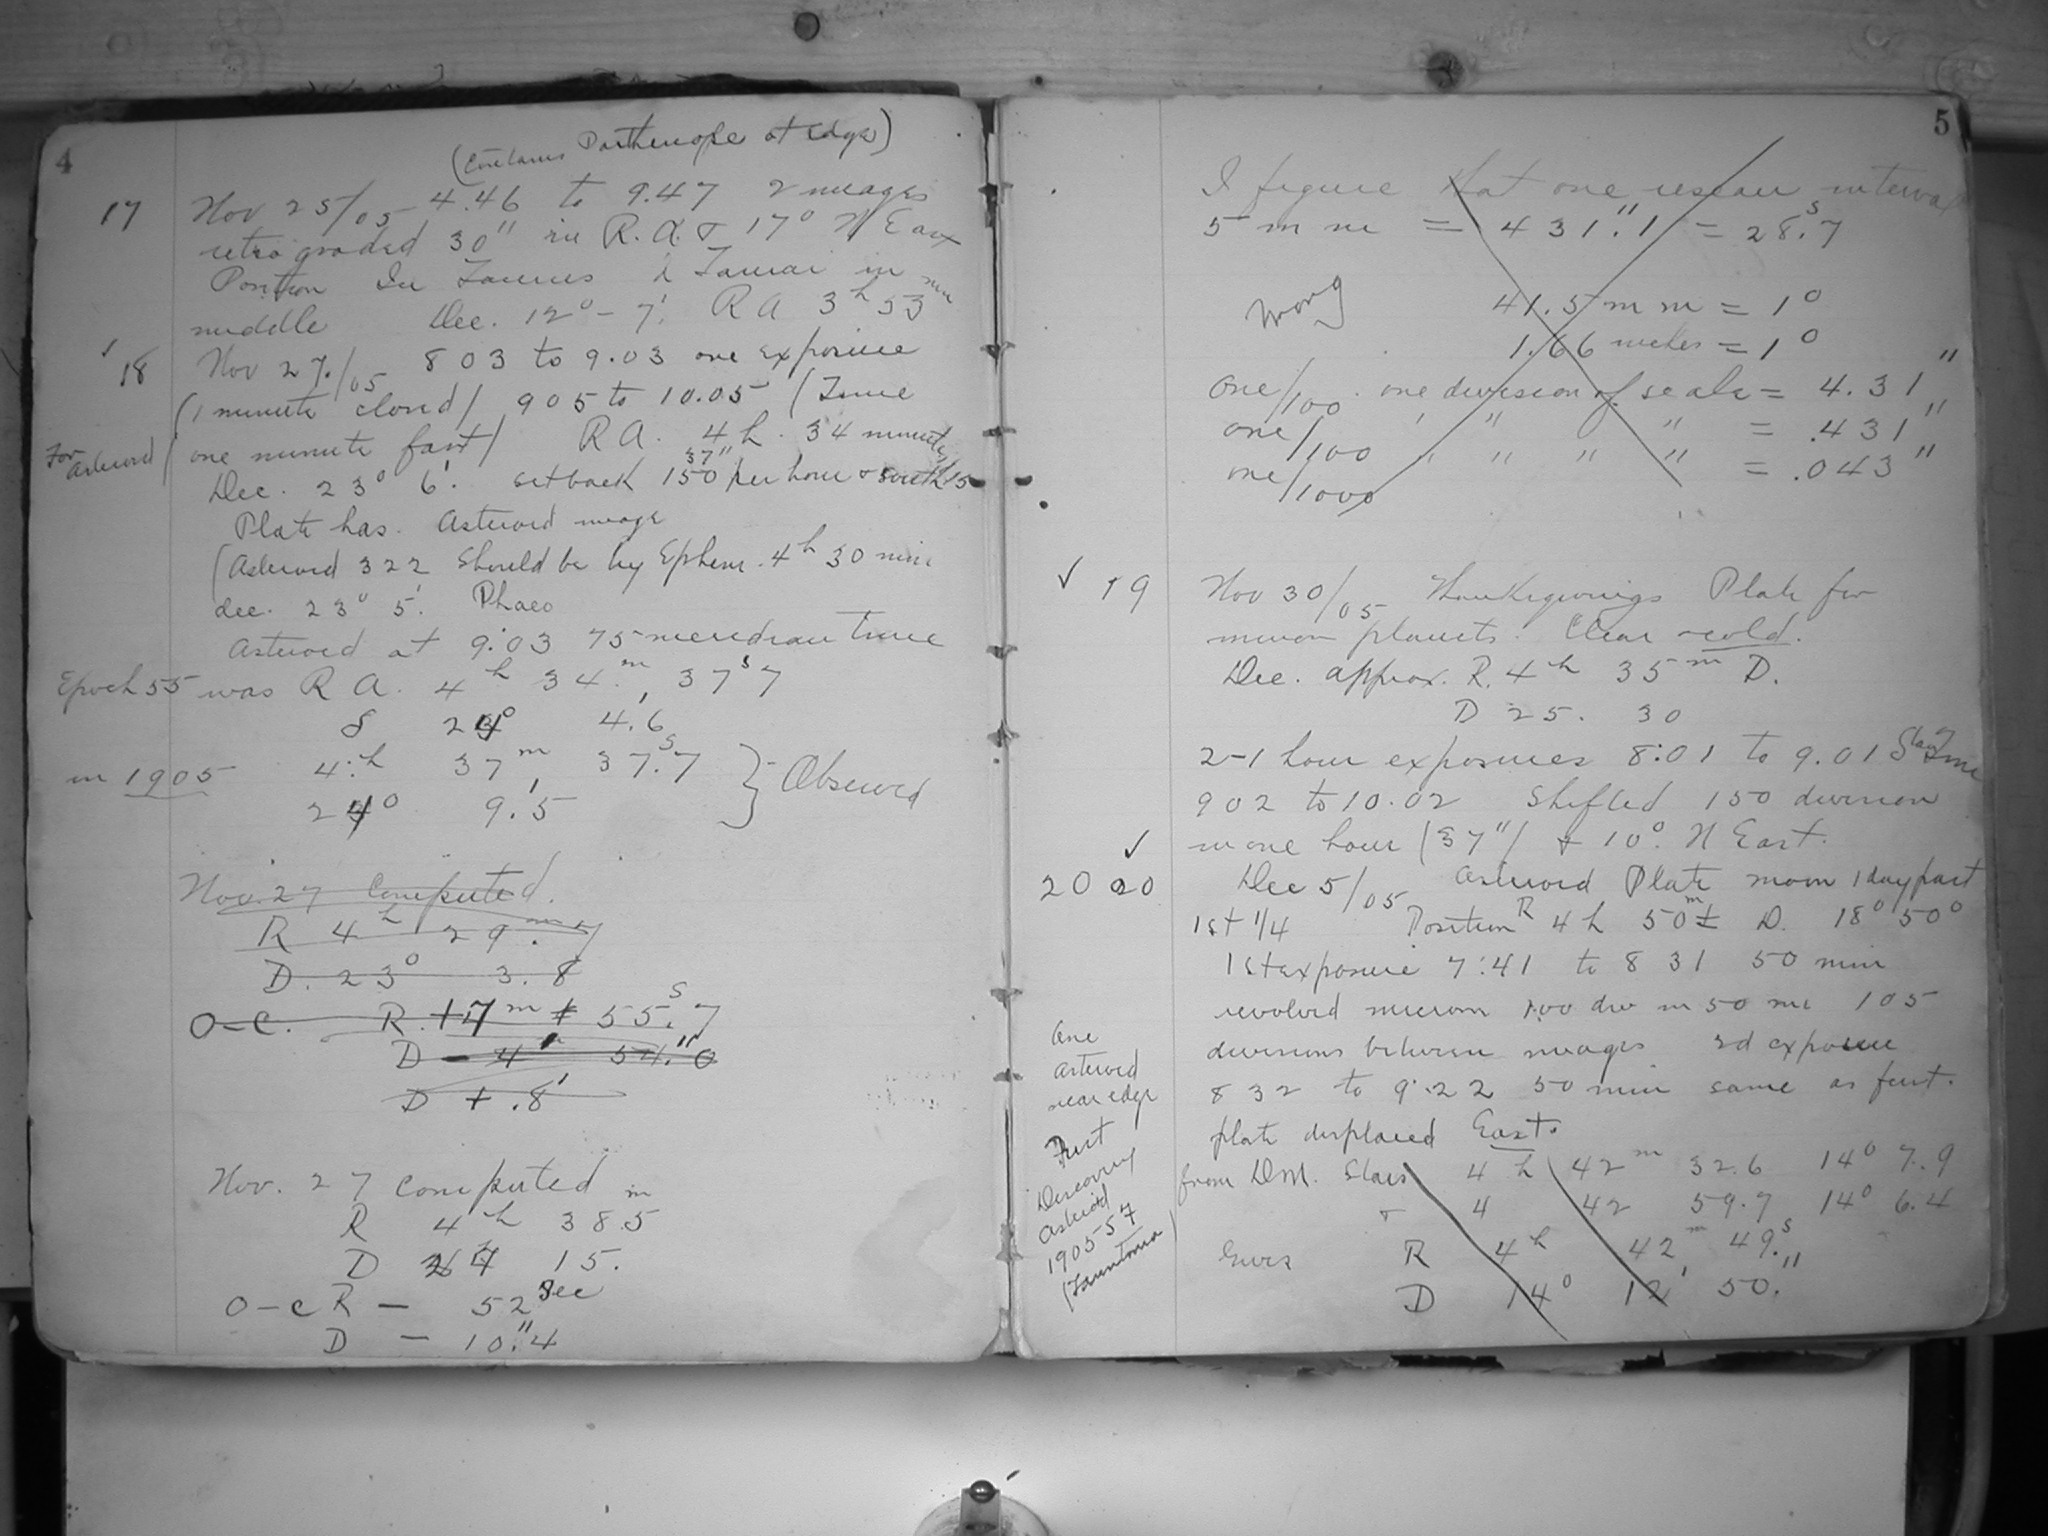 4
(Contains Parthenope at edge)
17 Nov 25/05 4.46 to 9.47 2 images
retrograded 30" in R.A. & 17° N East
Position In Taurus λ Tauri in
middle Dec. 12° - 7'. RA 3h 53 min
✓ 18 Nov 27./05 803 to 9.03 one exposure
(1 minute closed) 905 to 10.05 (Time
For Asteroid (one minute fast) RA. 4h. 34 minutes
37"
Dec. 23° 6'. setback 150 per hour & south 15
Plate has. Asteroid image
(Asteroid 322 Should be by Ephem. 4h 30 min
dec. 23° 5'. Phaeo
Asteroid at 9:03 75 meridian time
Epoch 55 was R A. 4h 34m, 37s7
δ 24° 4.'6
in 1905 4.h 37m, 37.s7 } Observed
24° 9.'5
Nov. 27 Computed.
R 4h 29.m7
D. 23° 3.8
O-C. R. +7m + 55.s7
D - 4' 54."0
D + .8'
Nov. 27 computed
R 4h 38.5m
D 24 15.
O-C R - 52 Sec
D - 10."4
5
I figure that one interval
5 m m = 431."1 = 28.s7
wrong 41.5 m m = 1°
1.66 meters = 1°
one/100 . one division of scale = 4.31"
one/100 " " " " = .431"
one/1000 " " " " = .043"
✓ 19 Nov 30/05 Thanksgivings Plate for
minor planets. Clear cold.
Dec. approx. R. 4h 35m D.
D 25. 30
2-1 hour exposures 8:01 to 9.01 Stan Time
902 to 10.02 Shifted 150 division
in one hour (37") & 10°. N East.
✓
20 20 Dec 5/05 Asteroid Plate moon 1 day past
1st 1/4 Position R 4h 50m± D. 18° 50°
1st exposure 7:41 to 8 31 50 min
revolved microm 100 div in 50 mi 105
divisions between images 2d exposure
8 32 to 9.22 50 min same as first.
plate displaced East.
One
asteroid
near edge
First
Discovery
Asteroid
1905-57
(Tauntonia)
from D.M. Stars 4h 42m 32.6 14° 7.9
& 4 42 59.7 14° 6.4
Gives R 4h 42m 49.s
D 14° 12' 50."